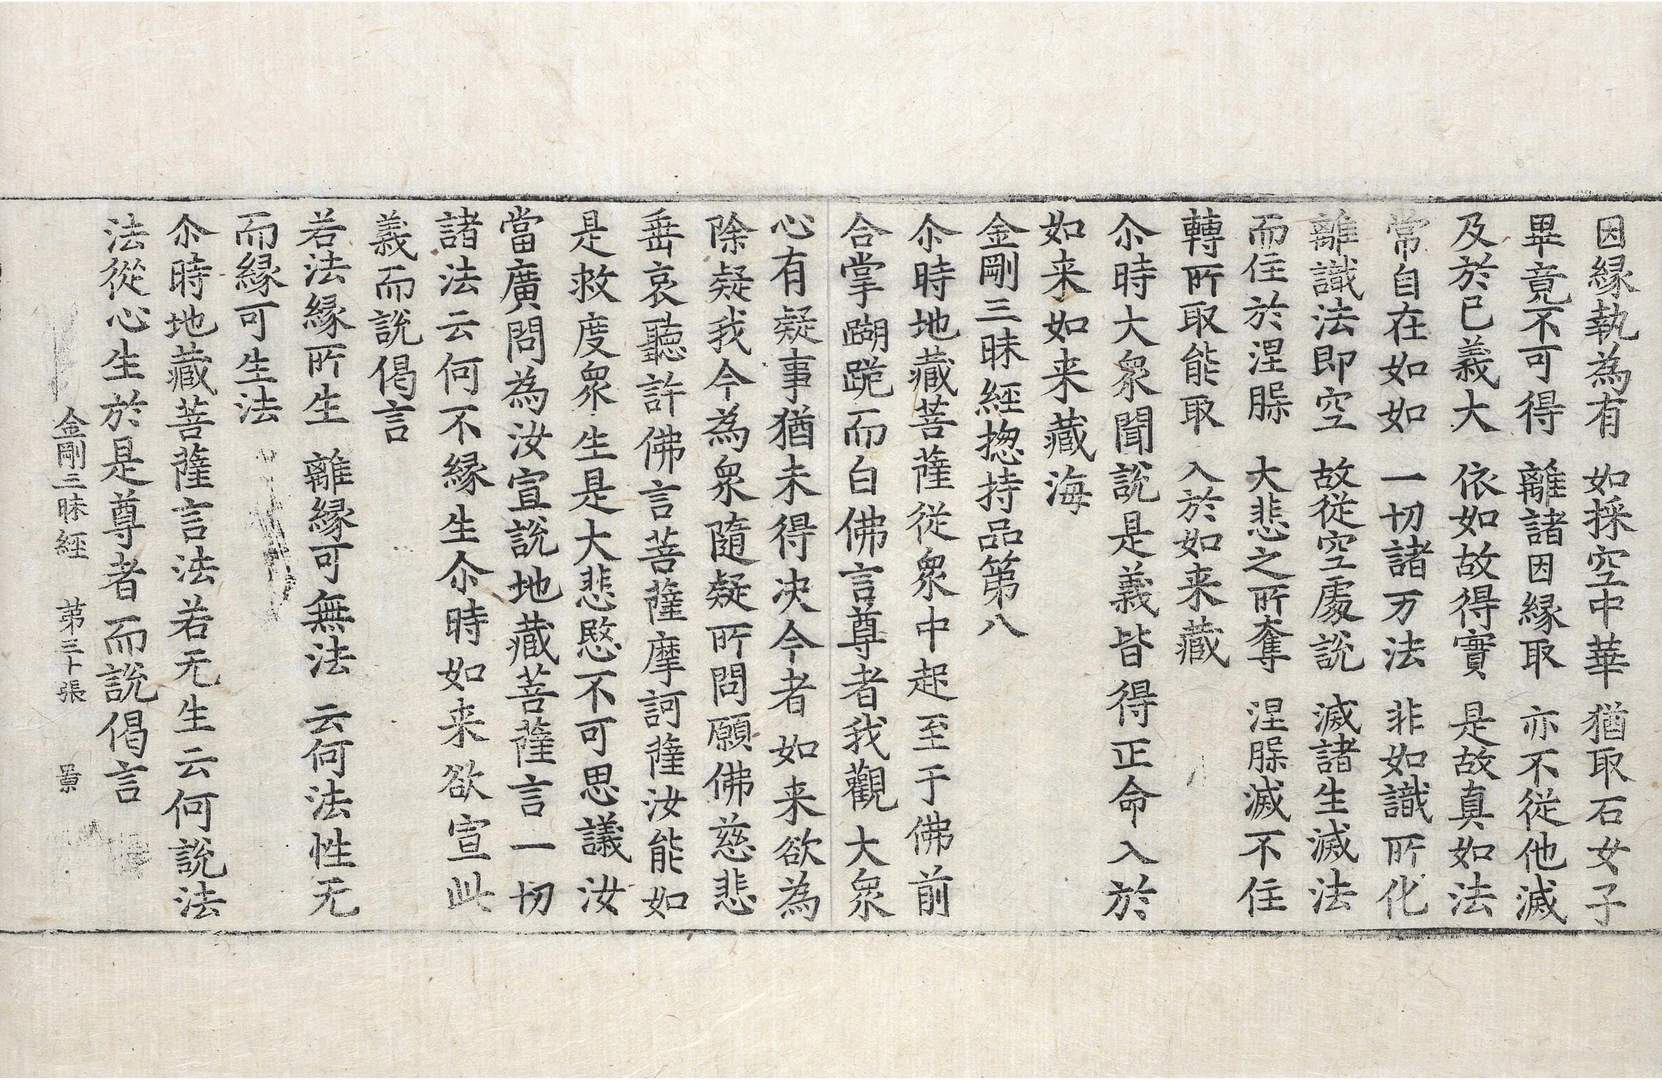 因縁執為有　如採空中華　猶取石女子
畢竟不可得　離諸因縁取　亦不従他滅
及於已義大　依如故得實　是故真如法
常自在如如　一切諸万法　非如識所化
離識法即空　故從空處說　滅諸生滅法
而住於涅槃　大悲之所奪　涅槃滅不住
轉所取能取　入於如来藏
尒時大衆聞說是義皆得正命入於
如来如来藏海
金剛三昧經揔持品第八
尒時地藏菩薩従衆中起至于佛前
合掌䠒跪而白佛言尊者我觀大衆
心有疑事猶未得决今者如来欲為
除疑我今為衆隨疑所問願佛慈悲
垂哀聽許佛言菩薩摩訶薩汝能如
是救度衆生是大悲愍不可思議汝
當廣問為汝宣說地藏菩薩言一切
諸法云何不縁生尒時如来欲宣此
義而說偈言
若法縁所生　離縁可無法　云何法性无
而縁可生法
尒時地藏菩薩言法若无生云何說法
法從心生於是尊者而說偈言
金剛三昧經　第三十張　景